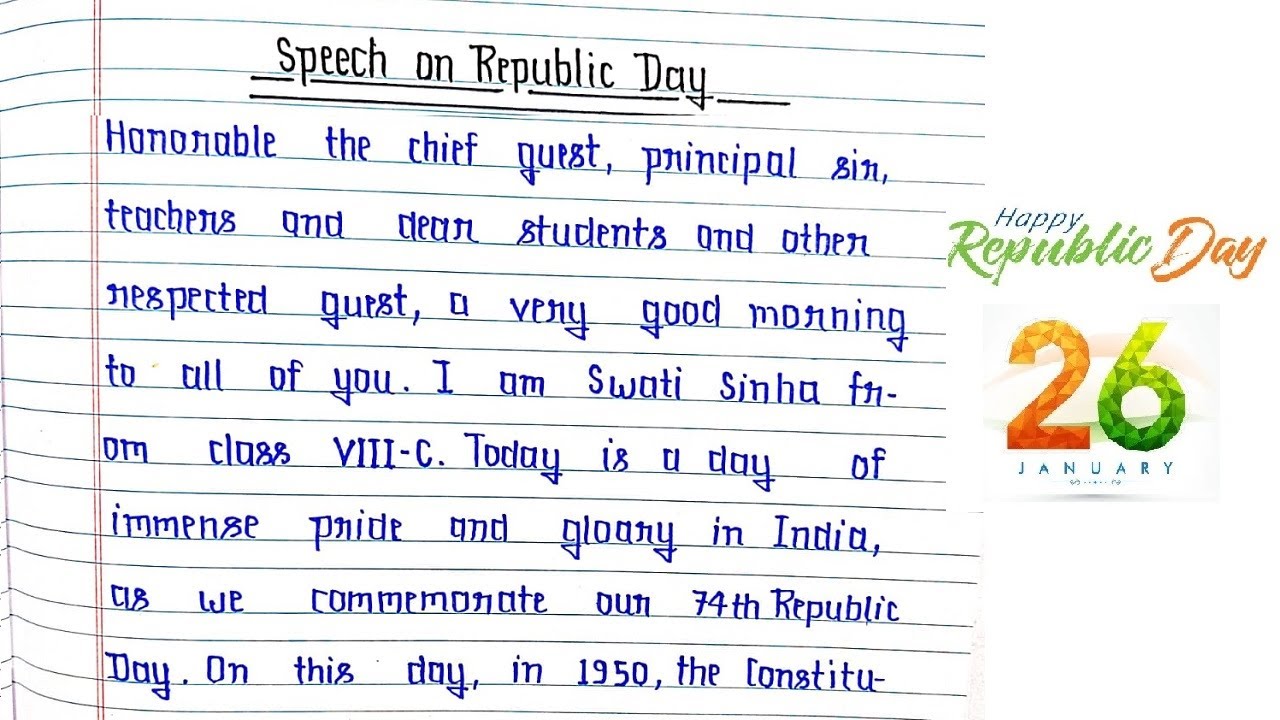 Speech on Republic Day
Honorable the chief guest, principal sir,
teachers and dear students and other
respected guest, a very good morning
to all of you. I am Swati Sinha fr-
om class VIII-C. Today is a day of
immense pride and gloary in India,
as we commemorate our 74th Republic
Day. On this day, in 1950, the Constitu-
Happy
Republic Day
26
JANUARY